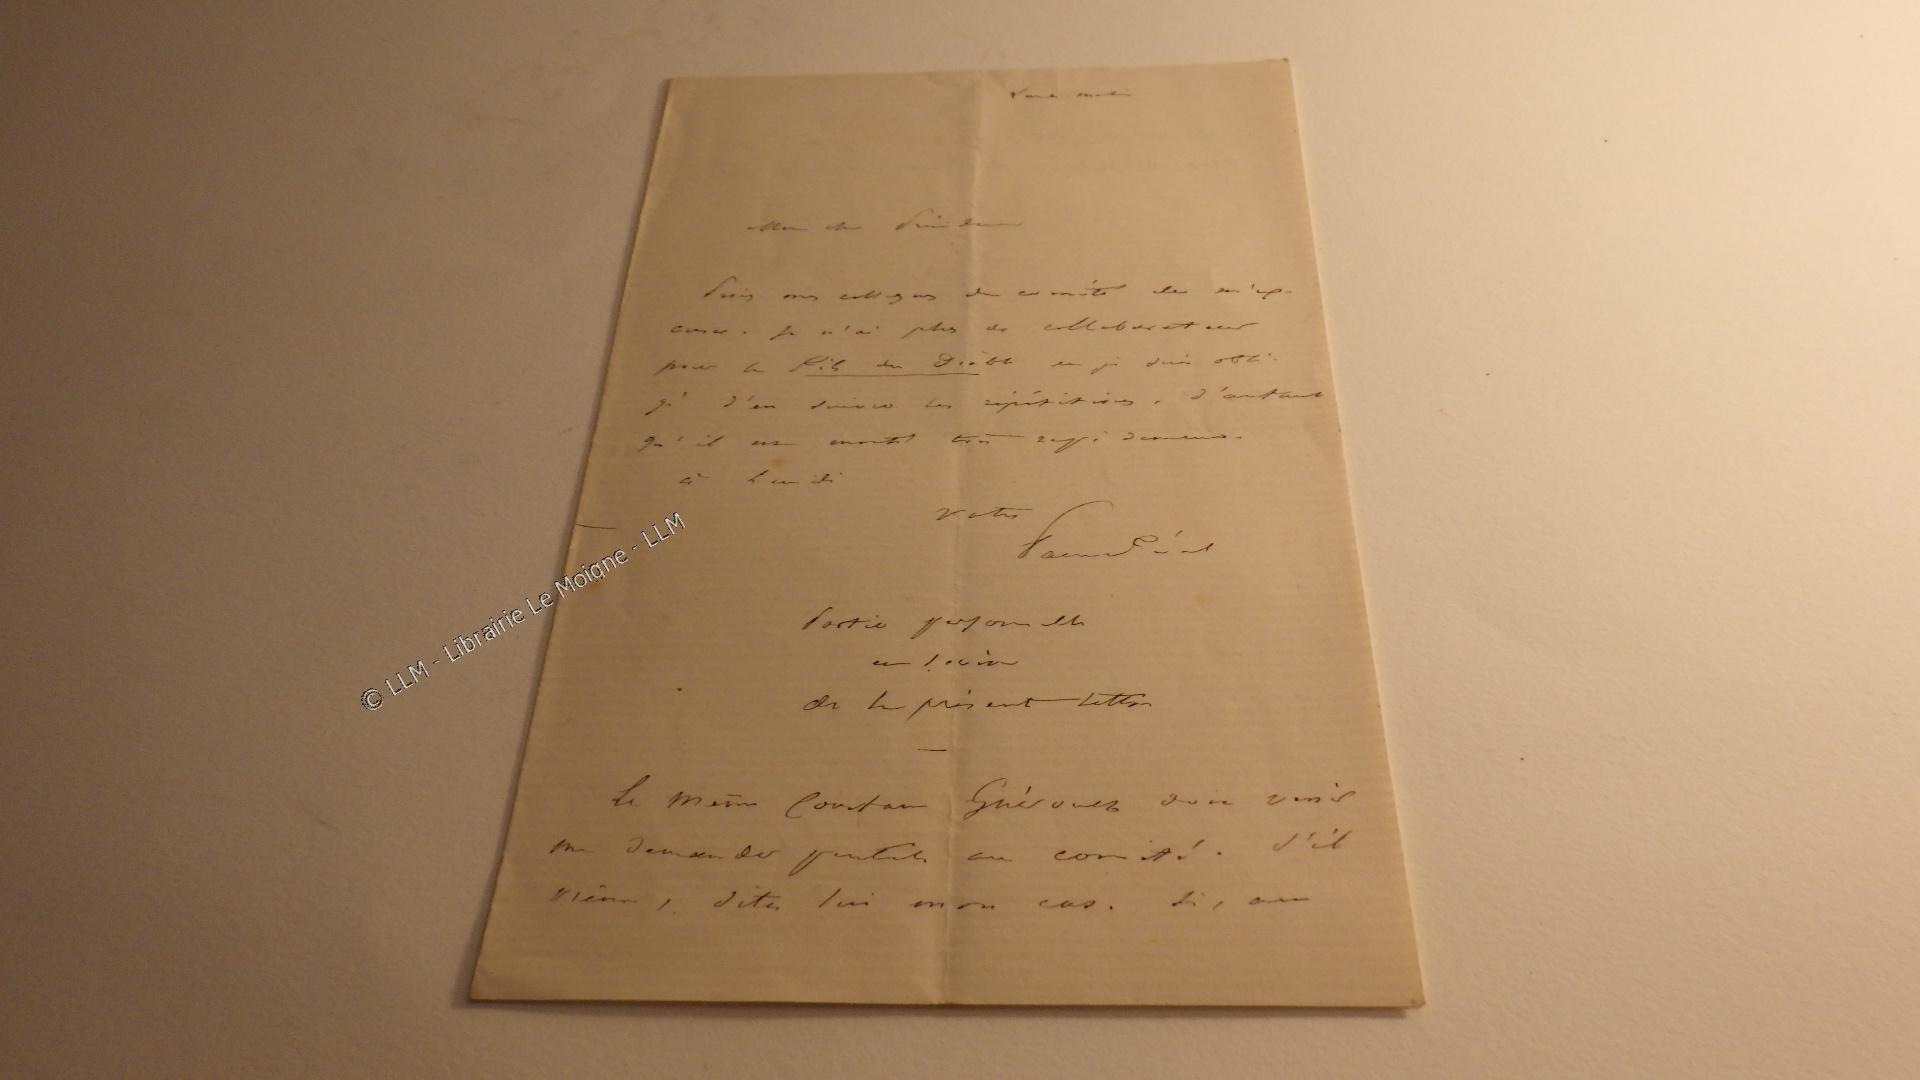 matin
Mon cher Président
Priez nos collègues du comité de m'ex-
cuser. Je n'ai plus de collaborateur
pour le Fils du Diable et je suis obli-
gé d'en suivre les répétitions, d'autant
qu'il est monté très rapidement.
à lundi
votre
Paul Féval
Partie personnelle
de la présente lettre
—
Le même Constant Guéroult doit venir
me demander au comité. S'il
vient, dites lui mon cas. Si, au
© LLM - Librairie Le Moigne - LLM